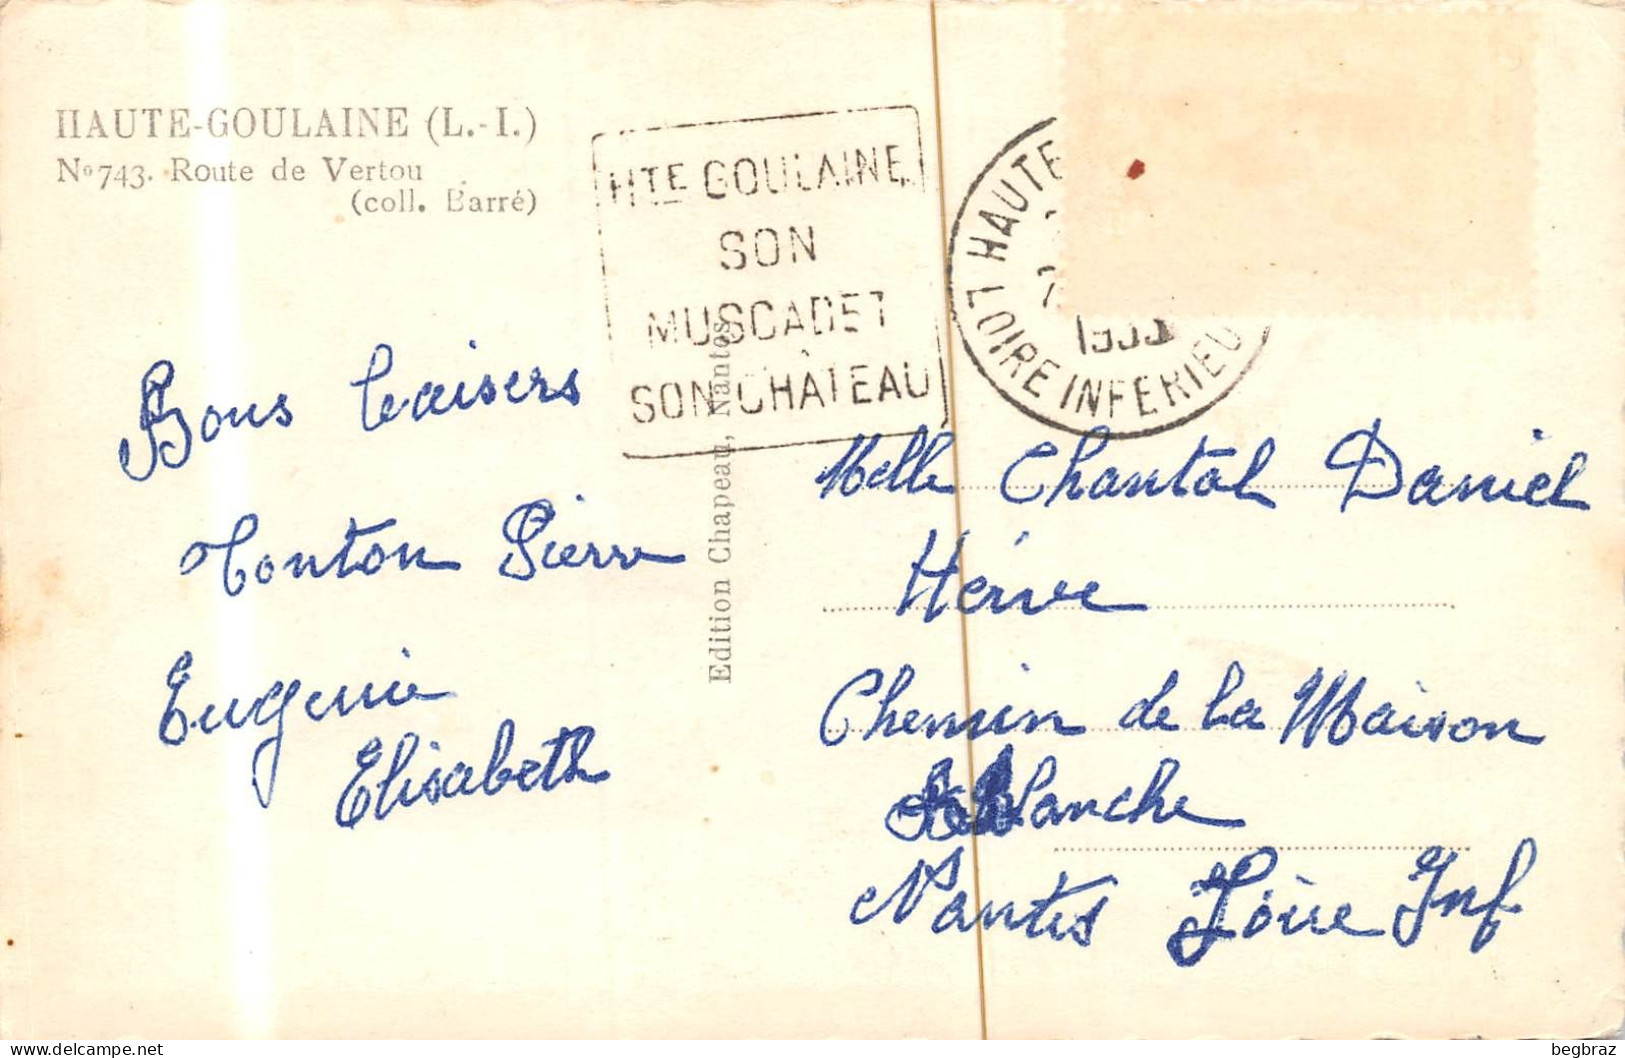 HAUTE-GOULAINE (L.-I.)
Nº 743. Route de Vertou
(coll. Barré)
HTE GOULAINE
SON
MUSCADET
SON CHÂTEAU
HAUTE
LOIRE INFERIEU
Edition Chapeau, Nantes
Bons baisers
Tonton Pierre
Eugenie
Elisabeth
Melle Chantal Daniel
Hérve
Chemin de la Maison
Blanche
Nantes Loire Inf.
begbraz